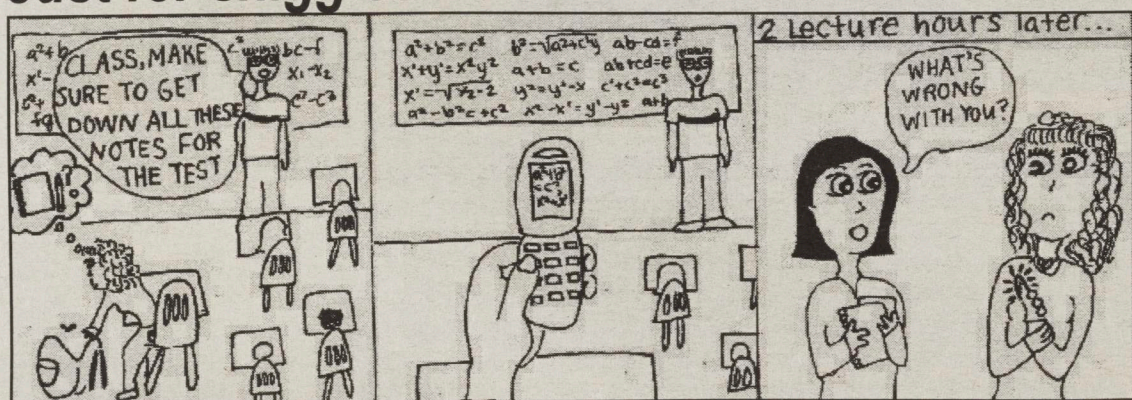 Just for
a²+b
x'-
CLASS, MAKE
SURE TO GET
DOWN ALL THESE
NOTES FOR
THE TEST
bc-f
x₁-x₂
c²-c³
a²+b²=c² b²=√a²+c²y ab-cd=f
x'+y'=x²y² a+b=c ab+cd=e
x'=√x₂-2 y²=y'-x c'+c²=c³
a²-b²c+c² x²-x'=y'-y² a+b
2 Lecture hours later...
WHAT'S
WRONG
WITH YOU?